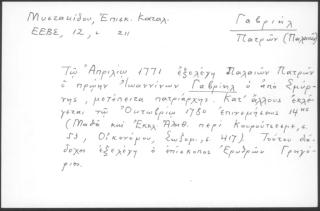 Μυστακίδου, Ἐπισκ. Καταλ.
ΕΕΒΣ, 12, σ 211
Γαβριήλ
Πατρῶν (Παλαιῶν)
Τῷ Ἀπριλίῳ 1771 ἐξελέγη Παλαιῶν Πατρῶν
ὁ πρῴην Ἰωαννίνων Γαβριήλ ὁ ἀπό Σμύρ-
νης, μετέπειτα πατριάρχης. Κατ' ἄλλους ἐκλέ-
γεται τῷ Ὀκτωβρίῳ 1780 ἐπινεμήσεως 14ης
(Μαθᾶ καί Ἐκκλ Ἀληθ. περί Κουρούτσεσμε, σ.
53, Οἰκονόμου, σ. 417). Τούτου διά-
δοχος ἐξελέγη ὁ ἐπίσκοπος Ἐρυθρῶν Γρηγό-
ριος.